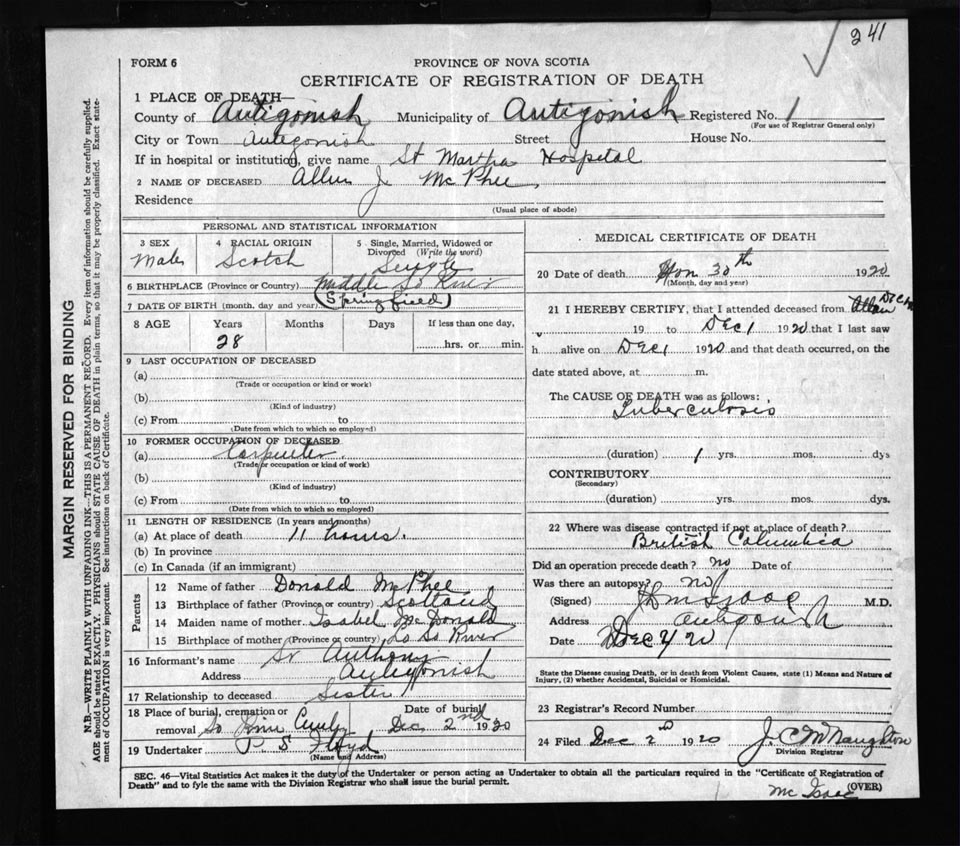 241
FORM 6
PROVINCE OF NOVA SCOTIA
CERTIFICATE OF REGISTRATION OF DEATH
1 PLACE OF DEATH—
County of Antigonish Municipality of Antigonish Registered No. 1
(For use of Registrar General only)
City or Town Antigonish Street House No.
If in hospital or institution, give name St Martha Hospital
2 NAME OF DECEASED Allan J McPhee
Residence
(Usual place of abode)
PERSONAL AND STATISTICAL INFORMATION
3 SEX Male
4 RACIAL ORIGIN Scotch
5 Single, Married, Widowed or Divorced (Write the word) Single
6 BIRTHPLACE (Province or Country) Middle So River
(Springfield)
7 DATE OF BIRTH (month, day and year)
8 AGE Years Months Days If less than one day,
28 hrs. or min.
9 LAST OCCUPATION OF DECEASED
(a)
(Trade or occupation or kind or work)
(b)
(Kind of industry)
(c) From to
(Date from which to which so employed)
10 FORMER OCCUPATION OF DECEASED
(a) Carpenter
(Trade or occupation or kind of work)
(b)
(Kind of industry)
(c) From to
(Date from which to which so employed)
11 LENGTH OF RESIDENCE (In years and months)
(a) At place of death 11 hours.
(b) In province
(c) In Canada (if an immigrant)
Parents
12 Name of father Donald McPhee
13 Birthplace of father (Province or country) Scotland
14 Maiden name of mother Isabel McDonald
15 Birthplace of mother (Province or country) Lo So River
16 Informant's name Sr Anthony
Address Antigonish
17 Relationship to deceased Sister
18 Place of burial, cremation or removal So River Date of burial Dec 2nd 1920
19 Undertaker P S Floyd
(Name and Address)
MEDICAL CERTIFICATE OF DEATH
20 Date of death Nov 30th 1920
(Month, day and year)
21 I HEREBY CERTIFY, that I attended deceased from
19 to Dec 1 1920 that I last saw
h alive on Dec 1 1920 and that death occurred, on the
date stated above, at m.
The CAUSE OF DEATH was as follows:
Tuberculosis
(duration) 1 yrs. mos. dys
CONTRIBUTORY
(Secondary)
(duration) yrs. mos. dys.
22 Where was disease contracted if not at place of death?
British Columbia
Did an operation precede death? no Date of
Was there an autopsy? no
(Signed) M.D.
Address Antigonish
Date Dec 2/20
State the Disease causing Death, or in death from Violent Causes, state (1) Means and Nature of
Injury, (2) whether Accidental, Suicidal or Homicidal.
23 Registrar's Record Number
24 Filed Dec 2nd 1920 J. C McNaughton
Division Registrar
SEC. 46—Vital Statistics Act makes it the duty of the Undertaker or person acting as Undertaker to obtain all the particulars required in the "Certificate of Registration of
Death" and to fyle the same with the Division Registrar who shall issue the burial permit.
(OVER)
Mc Isaac
MARGIN RESERVED FOR BINDING
N.B.—WRITE PLAINLY WITH UNFADING INK—THIS IS A PERMANENT RECORD. Every item of information should be carefully supplied.
AGE should be stated EXACTLY. PHYSICIANS should STATE CAUSE OF DEATH in plain terms, so that it may be properly classified. Exact state-
ment of OCCUPATION is very important. See instructions on back of Certificate.